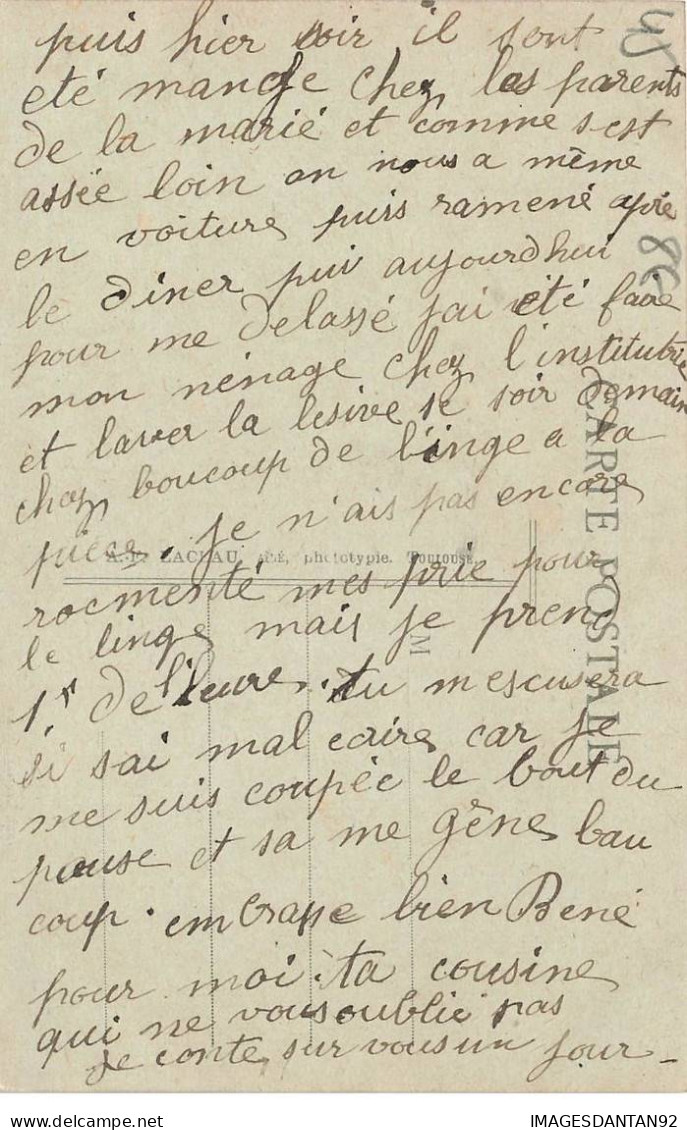 puis hier soir il sont
eté mange chez les parents
de la marié et comme s'est
assée loin on nous a même
en voiture puis ramené aprè
le diner pui aujourdhui
pour me delassé jai été faire
mon ménage chez l'institutrie
et laver la lesive se soir demain
chez boucoup de linge a la
pièce. je n'ais pas encore
A. LACHAU, phototypie. TOULOUSE
mes prie pour
le linge mais je prend
1f de l'heure. tu mescusera
si sai mal ecrire car je
me suis coupée le bout du
pouse et sa me gêne bau
coup. embrasse bien René
pour moi. ta cousine
qui ne vous oublie pas
je conte sur vous un jour
CARTE POSTALE
M
45
80
IMAGESDANTAN92